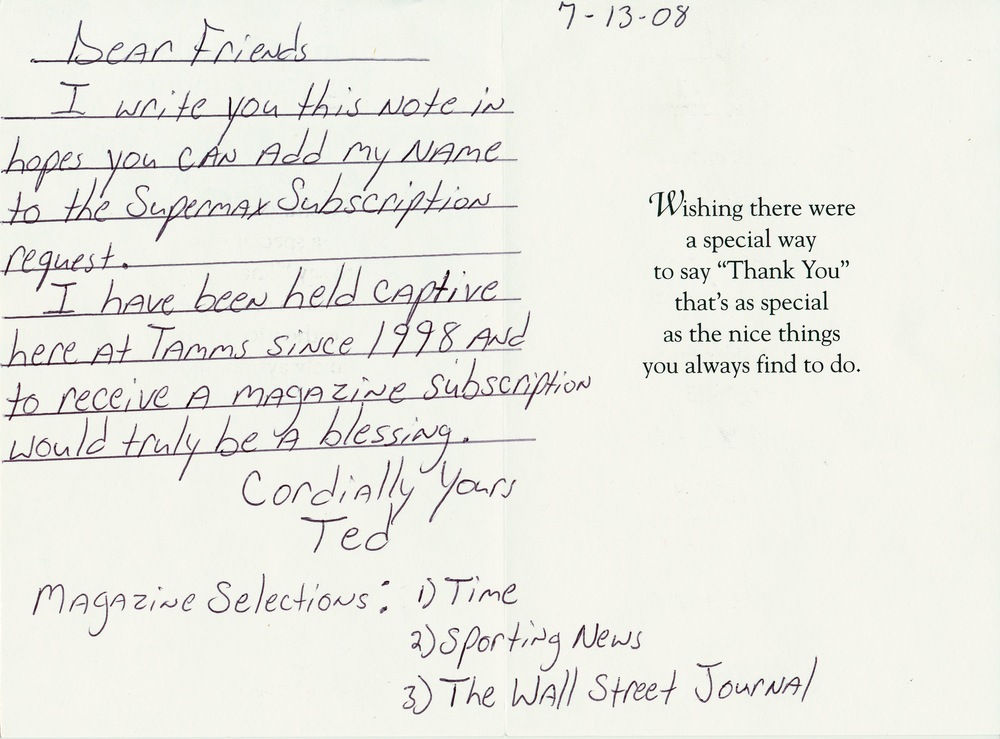 7-13-08
Dear Friends
I write you this note in
hopes you can add my name
to the Supermax Subscription
request.
I have been held captive
here at Tamms since 1998 and
to receive a magazine subscription
would truly be a blessing.
Cordially Yours
Ted
Magazine Selections: 1) Time
2) Sporting News
3) The Wall Street Journal
Wishing there were
a special way
to say “Thank You”
that’s as special
as the nice things
you always find to do.